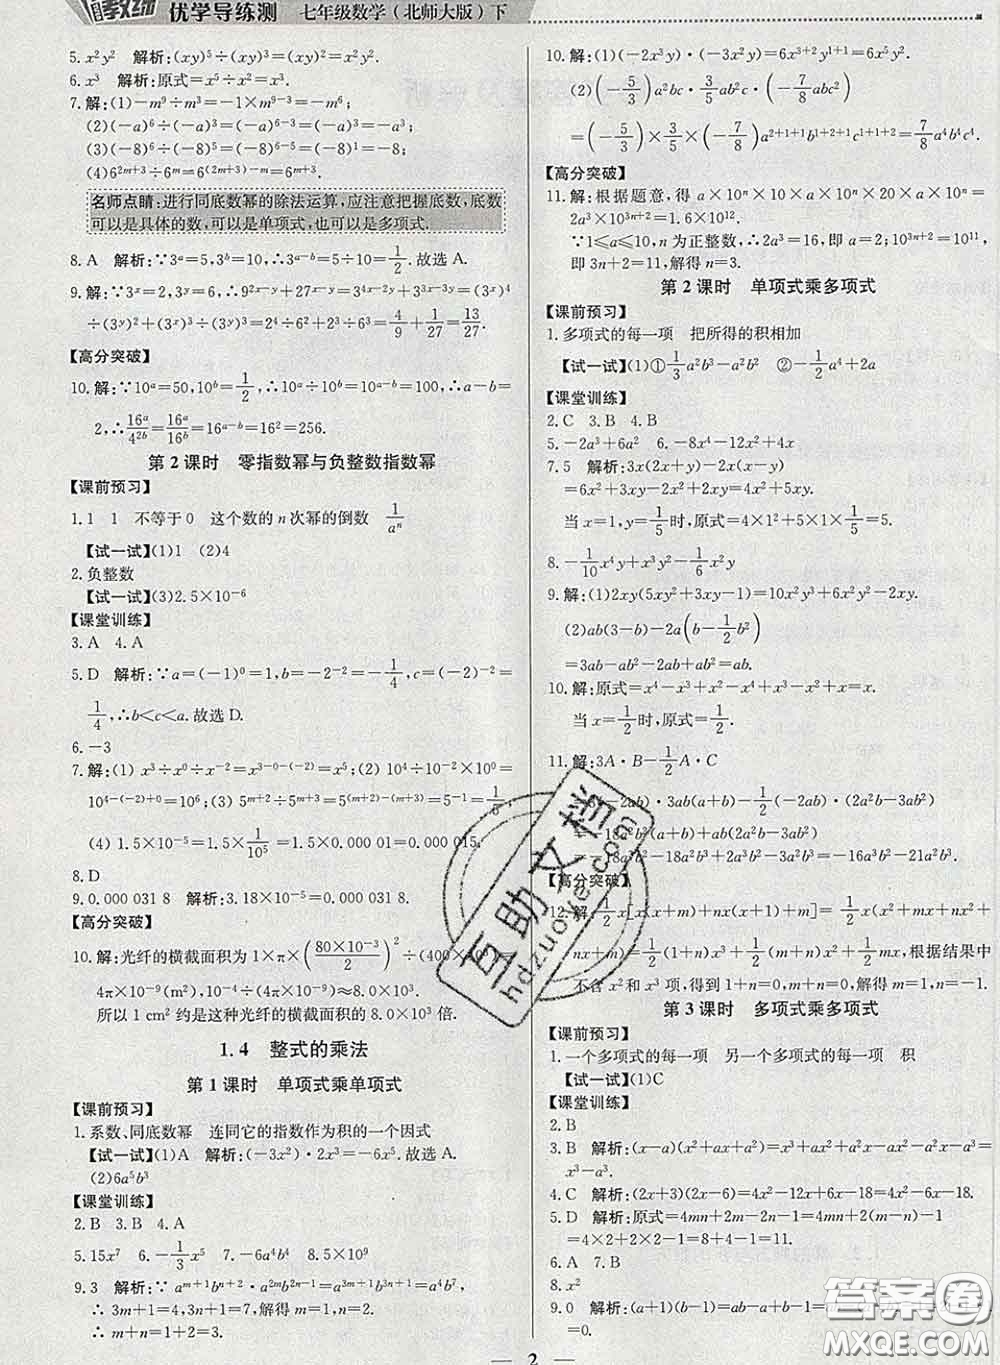 优学导练测 七年级数学(北师大版)下
5. x²y² 解析:(xy)⁵÷(xy)³=(xy)²=x²y².
6. x³ 解析:原式=x⁵÷x²=x³.
7. 解:(1)-m⁹÷m³=-1×m⁹⁻³=-m⁶;
(2)(-a)⁶÷(-a)³=(-a)⁶⁻³=(-a)³=-a³;
(3)(-8)⁶÷(-8)⁵=(-8)⁶⁻⁵=(-8)¹=-8;
(4)6²ᵐ⁺³÷6ᵐ=6⁽²ᵐ⁺³⁾⁻ᵐ=6ᵐ⁺³.
名师点睛:进行同底数幂的除法运算,应注意把握底数,底数
可以是具体的数,可以是单项式,也可以是多项式.
8. A 解析:∵3ᵃ=5,3ᵇ=10,∴3ᵃ⁻ᵇ=5÷10=1/2.故选A.
9. 解:∵3ˣ=2,3ʸ=6,∴9²ˣ⁻ʸ+27ˣ⁻ʸ=3⁴ˣ⁻²ʸ+3³ˣ⁻³ʸ=(3ˣ)⁴
÷(3ʸ)²+(3ˣ)³÷(3ʸ)³=2⁴÷6²+2³÷6³=4/9+1/27=13/27.
【高分突破】
10. 解:∵10ᵃ=50,10ᵇ=1/2,∴10ᵃ÷10ᵇ=10ᵃ⁻ᵇ=100,∴a-b=
2,∴16ᵃ/4²ᵇ=16ᵃ/16ᵇ=16ᵃ⁻ᵇ=16²=256.
第2课时 零指数幂与负整数指数幂
【课前预习】
1. 1 1 不等于0 这个数的n次幂的倒数 1/aⁿ
【试一试】(1)1 (2)4
2. 负整数
【试一试】(3)2.5×10⁻⁶
【课堂训练】
3. A 4. A
5. D 解析:∵a=(-1)⁰=1,b=-2⁻²=-1/4,c=(-2)⁻²=
1/4,∴b<c<a.故选D.
6. -3
7. 解:(1) x³÷x⁻²÷x⁰=x³⁻⁽⁻²⁾⁻⁰=x⁵;(2) 10⁴÷10⁻²÷10⁰=
10⁴⁻⁽⁻²⁾⁺⁰=10⁶;(3) 5ᵐ⁺²÷5ᵐ⁺³=5⁽ᵐ⁺²⁾⁻⁽ᵐ⁺³⁾=5⁻¹=
(4) 1.5×10⁻⁵=1.5×1/10⁵=1.5×0.000 01=0.000 015.
8. D
9. 0.000 031 8 解析:3.18×10⁻⁵=0.000 031 8.
【高分突破】
10. 解:光纤的横截面积为1×π×(80×10⁻³/2)²÷(400×
4π×10⁻⁹(m²),10⁻⁴÷(4π×10⁻⁹)≈8.0×10³.
所以1 cm²约是这种光纤的横截面积的8.0×10³倍.
1.4 整式的乘法
第1课时 单项式乘单项式
【课前预习】
1. 系数、同底数幂 连同它的指数作为积的一个因式
【试一试】(1)A 解析:(-3x²)·2x³=-6x⁵.故选A.
(2)6a⁵b³
【课堂训练】
2. B 3. B 4. A
5. 15x⁷ 6. -1/3x⁵ 7. -6a⁴b² 8. 5×10⁹
9. 3 解析:∵aᵐ⁺¹bⁿ⁺²·a²ᵐb²ⁿ⁻¹=a³ᵐ⁺¹b³ⁿ⁺¹=a⁴b⁷,
∴3m+1=4,3n+1=7,解得m=1,n=2,
∴m+n=1+2=3.
10. 解:(1)(-2x³y)·(-3x³y)=6x³⁺³y¹⁺¹=6x⁶y².
(2)(-5/3)a²bc·3/5ab²c·(-7/8abc)
=(-5/3)×3/5×(-7/8)a²⁺¹⁺¹b¹⁺²⁺¹c¹⁺¹⁺¹=7/8a⁴b⁴c³.
【高分突破】
11. 解:根据题意,得a×10ⁿ×10ⁿ×20×a×10ⁿ×a×10=
2a³×10³ⁿ⁺²=1.6×10¹².
∵1≤a≤10,n为正整数,∴2a³=16,即a=2;10³ⁿ⁺²=10¹¹,
即3n+2=11,解得n=3.
第2课时 单项式乘多项式
【课前预习】
1. 多项式的每一项 把所得的积相加
【试一试】(1)①-1/3a²b³-a²b² ②-1/2a²+2a
【课堂训练】
2. C 3. B 4. B
5. -2a³+6a² 6. -8x⁴-12x²+4x
7. 5 解析:3x(2x+y)-2x(x-y)
=6x²+3xy-2x²+2xy=4x²+5xy.
当x=1,y=1/5时,原式=4×1²+5×1×1/5=5.
8. -1/10x⁴y+x³y²-1/6x²y
9. 解:(1)2xy(5xy²+3xy-1)=10x²y³+6x²y²-2xy.
(2)ab(3-b)-2a(b-1/2b²)
=3ab-ab²-2ab+ab²=ab.
10. 解:原式=x⁴-x³+x²-x⁴+x³-x²+x=x.
当x=1/2时,原式=1/2.
11. 解:3A·B-1/2A·C
-2ab)·3ab(a+b)-1/2(-2ab)·(2a²b-3ab²)
18a²b²(a+b)+ab(2a²b-3ab²)
-18a³b²-18a²b³+2a³b²-3a²b³=-16a³b²-21a²b³.
【高分突破】
12. 解:1/2x[x(x+m)+nx(x+1)+m]=1/2x(x²+mx+nx²+
nx+m)=1/2(1+n)x³+1/2(m+n)x²+1/2mx,根据结果中
不含x²和x³项,得到1+n=0,m+n=0,解得m=1,n=-1.
第3课时 多项式乘多项式
【课前预习】
1. 一个多项式的每一项 另一个多项式的每一项 积
【试一试】(1)C
【课堂训练】
2. B
3. B 解析:(x-a)(x²+ax+a²)=x³+ax²+a²x-ax²-a²x-a³=
x³-a³.
4. C 解析:(2x+3)(2x-6)=4x²-12x+6x-18=4x²-6x-18.
5. D 解析:原式=4mn+2m-2n-1=4mn+2(m-n)-1
=4×2+2×1-1=8+2-1=9.
6. A 7. B
8. x²
9. 0
2
互助文档
hdzuoye.com
答案圈
MXQE.COM